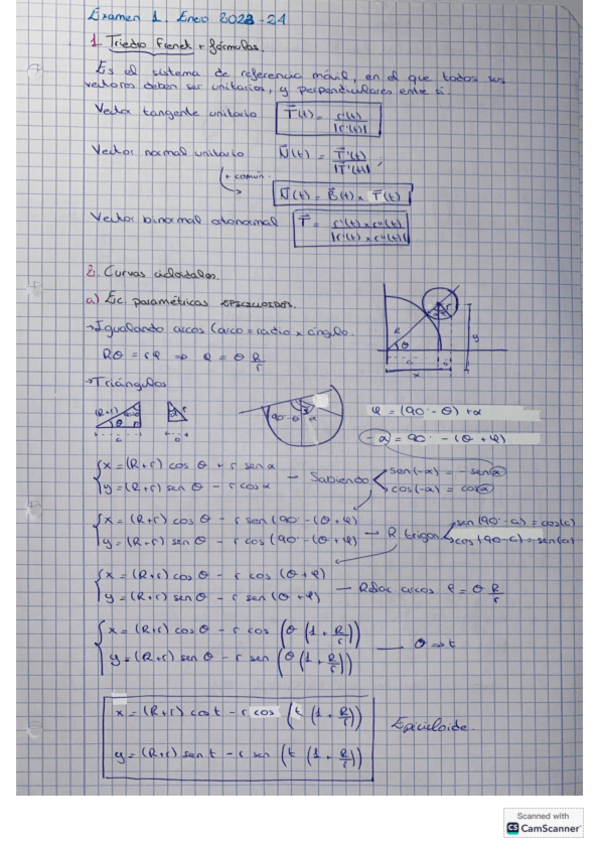 Examen 1. Enero 2023-24
1. Triedro Frenet + fórmulas.
Es el sistema de referencia móvil, en el que todos sus
vectores deben ser unitarios, y perpendiculares entre si.
Vector tangente unitario T⃗(t) = r'(t) / |r'(t)|
Vector normal unitario N⃗(t) = T⃗'(t) / |T⃗'(t)|,
(+ común.
N⃗(t) = B⃗(t) x T⃗(t)
Vector binormal otonormal T⃗ = r'(t) x r''(t) / |r'(t) x r''(t)|
2. Curvas cicloidales.
a) Ec paramétricas EPICICLOIDES.
→ Igualando arcos (arco = radio x ángulo.
Rθ = rφ ⇒ φ = θ R/r
R θ y x
→ Triángulos
(R+r) θ
90-θ α
φ = (90º - θ) + α
-α = 90º - (θ + φ)
x = (R+r) cos θ + r sen α
y = (R+r) sen θ - r cos α
— Sabiendo
sen(-α) = -sen α
cos(-α) = cos α
x = (R+r) cos θ - r sen (90º - (θ + φ)
y = (R+r) sen θ - r cos (90º - (θ + φ)
— R trigon
sen (90-a) = cos(a)
cos (90-a) = sen(a)
x = (R+r) cos θ - r cos (θ + φ)
y = (R+r) sen θ - r sen (θ + φ)
— Relac arcos φ = θ R/r
x = (R+r) cos θ - r cos (θ (1 + R/r))
y = (R+r) sen θ - r sen (θ (1 + R/r))
— θ ⇒ t
x = (R+r) cos t - r cos (t (1 + R/r))
y = (R+r) sen t - r sen (t (1 + R/r))
Epicicloide.
Scanned with
CS CamScanner